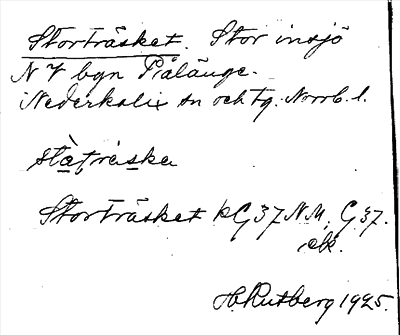 Storträsket. Stor insjö
N V bgn Pålänge.
Nederkalix sn och tg. Norrb. l.
Storträsket KG 37 N.M. G 37.
ek.
H. Rutberg 1925.